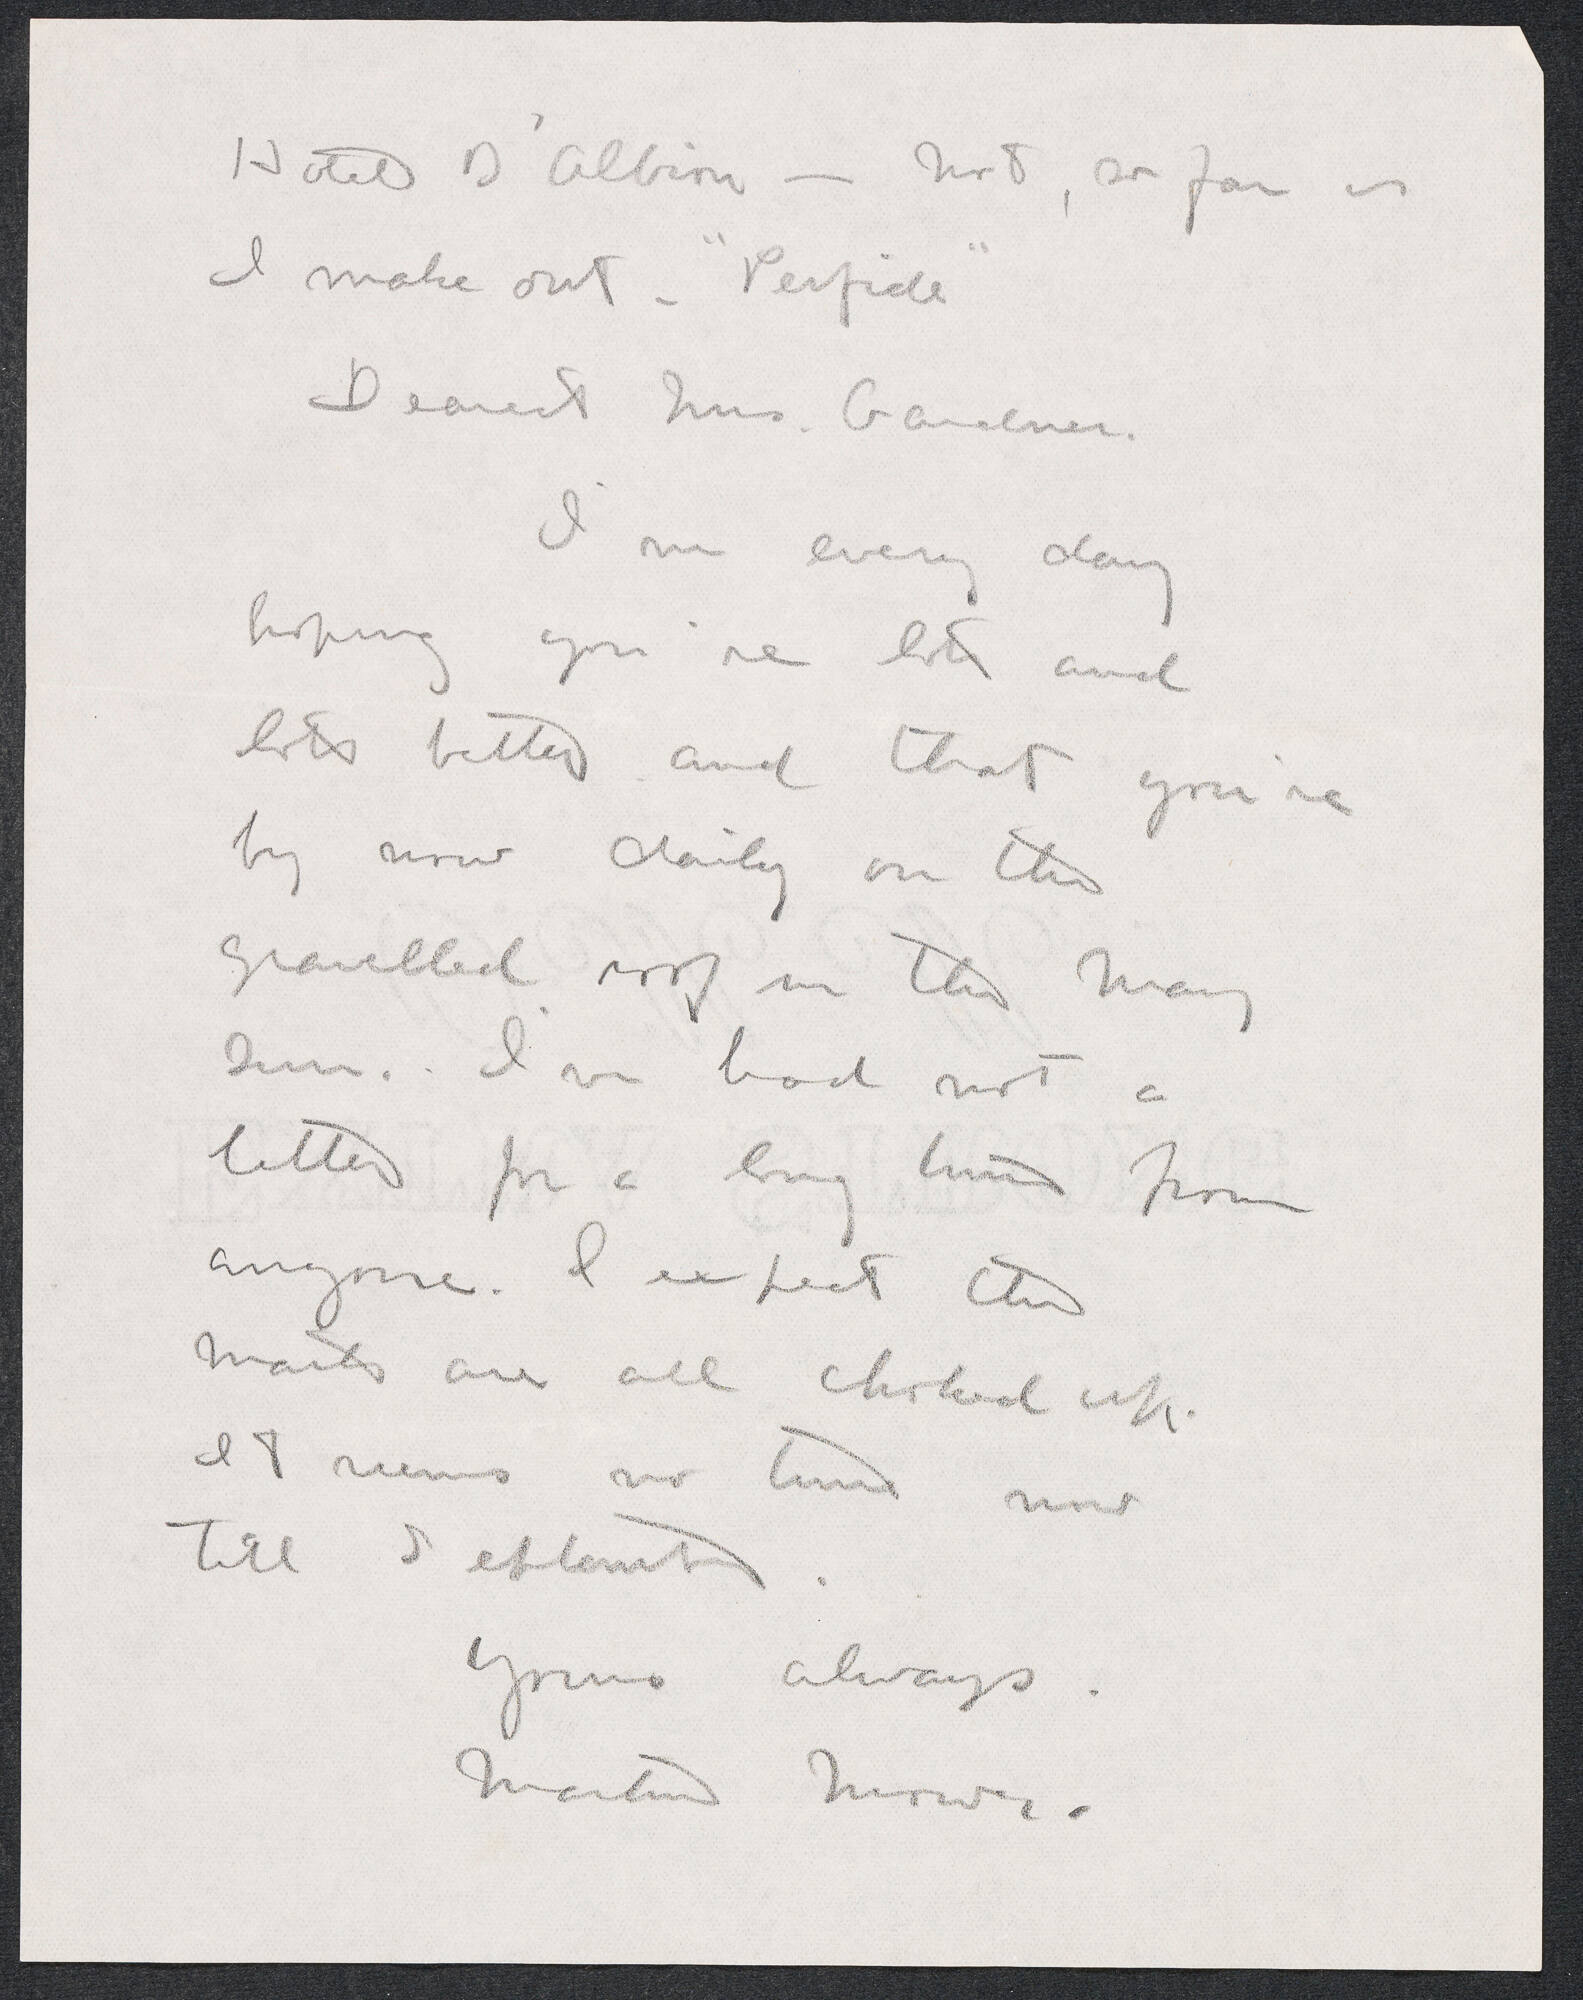 Hotel D'Albion — not, so far as
I make out - "Perfide"
Dearest Mrs. Gardner.
I'm every day
hoping you're lots and
lots better and that you're
by now daily on the
gravelled roof in the May
sun.. I've had not a
letter for a long time from
anyone. I expect the
mails are all choked up.
It seems no time now
till September.
Yours always.
Martin Mower.